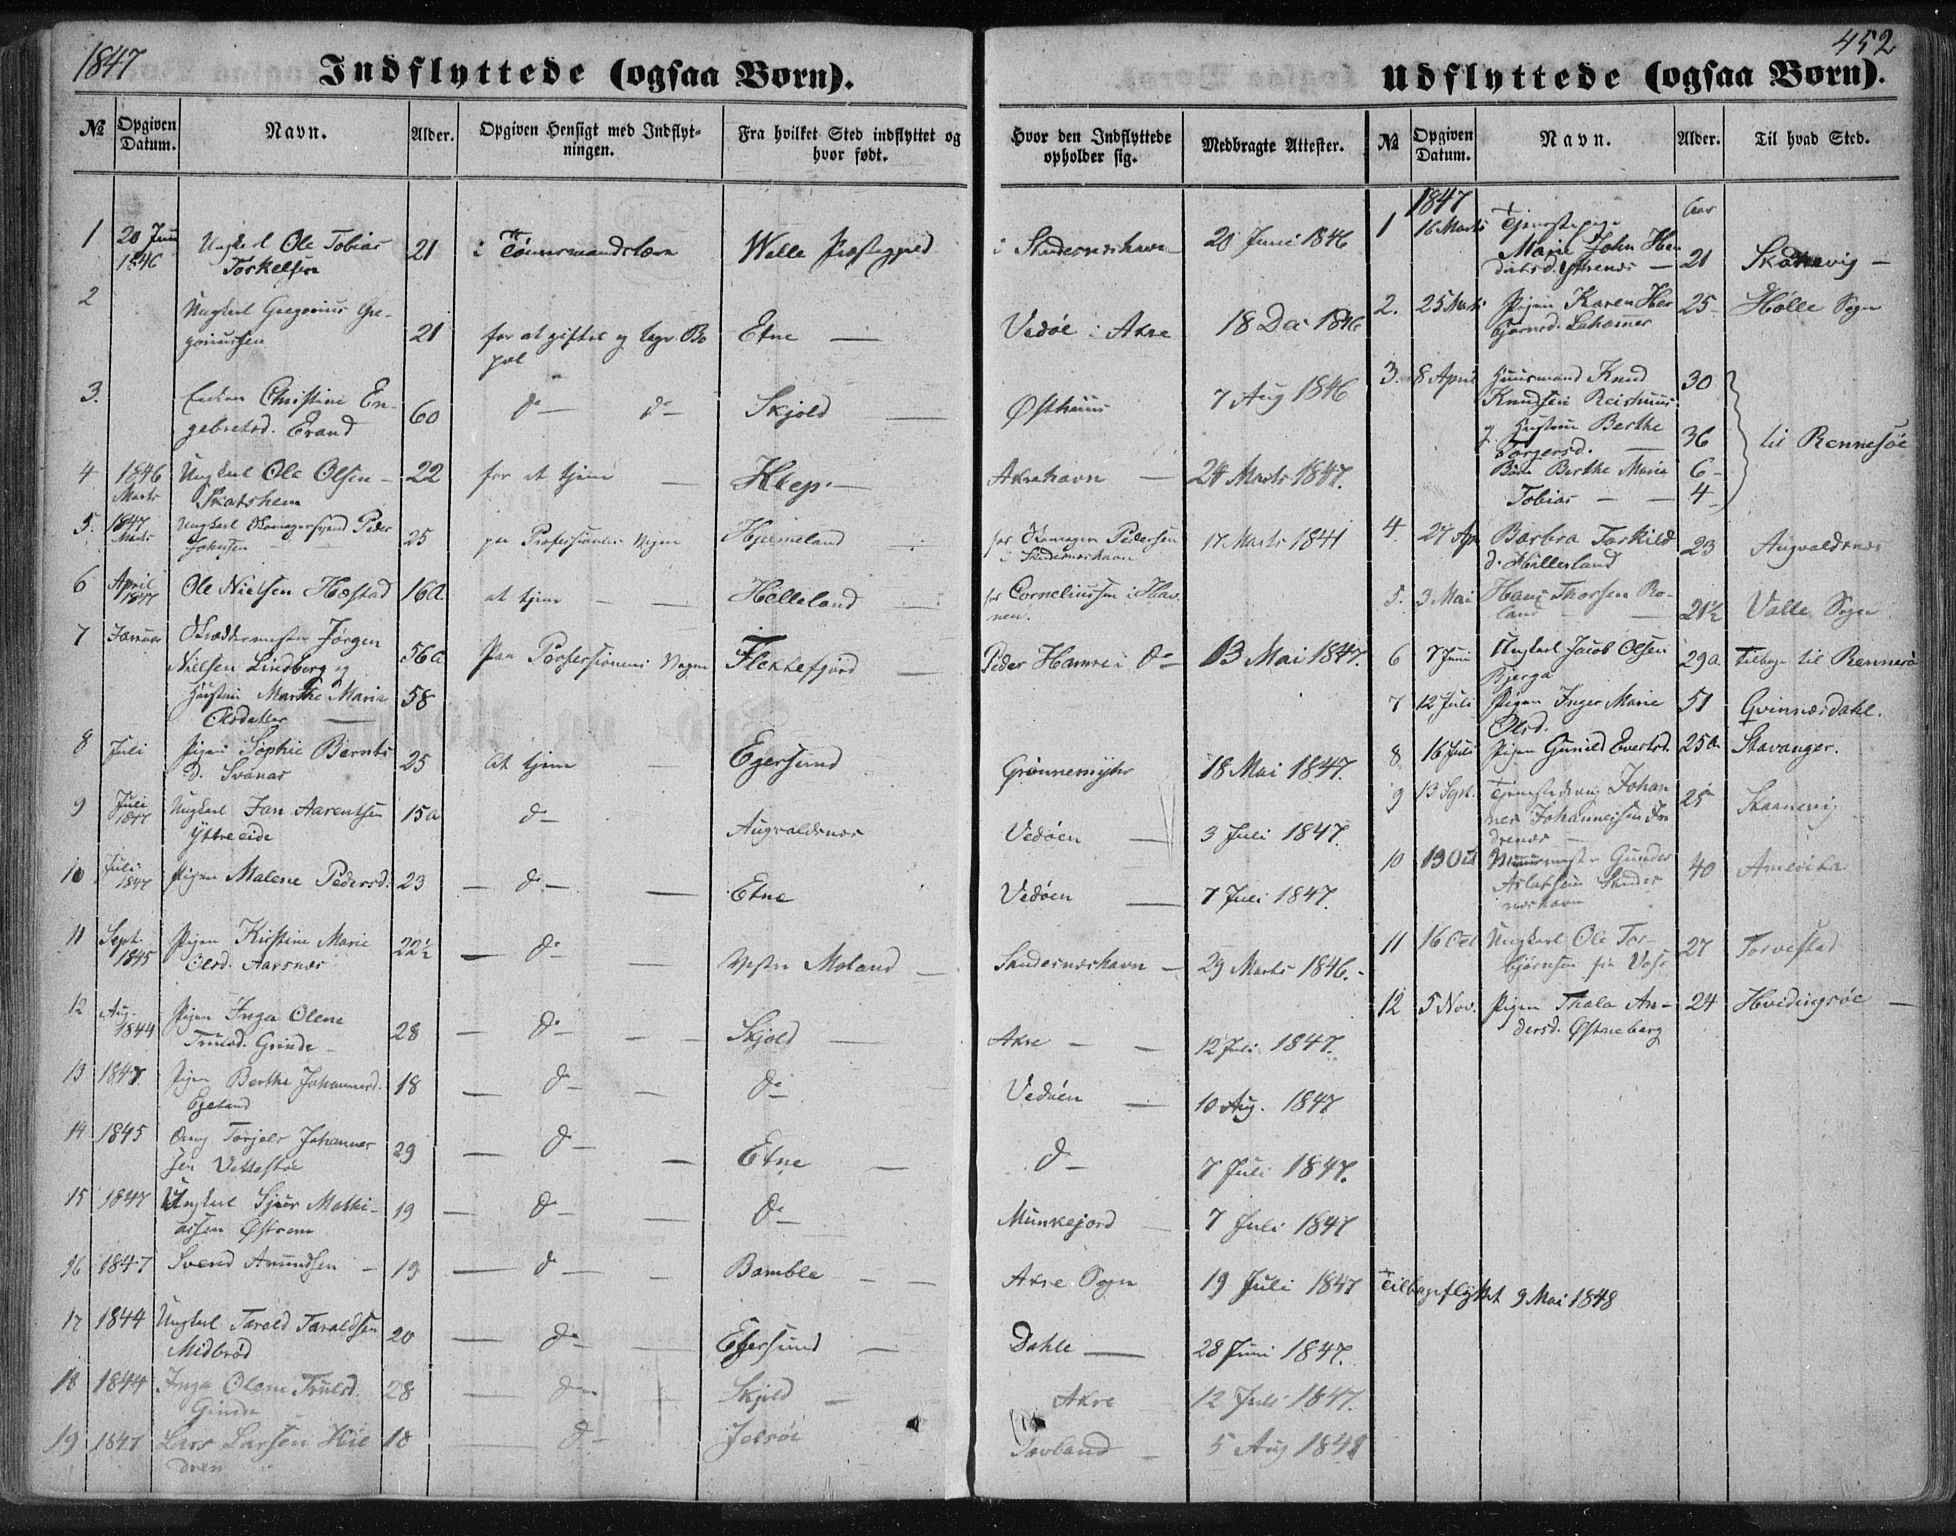 1847
452
Indflyttede (ogsaa Børn).
Udflyttede (ogsaa Børn).
№ Opgiven Datum. Navn. Alder. Opgiven Hensigt med Indflytningen. Fra hvilket Sted indflyttet og hvor født. Hvor den Indflyttede opholder sig. Medbragte Attester.
1 20 Juni 1846 Ungkarl Ole Tobias Torkelsen 21 i Tømmermandslære Walle Præstegjeld i Skudesneshavn 20 Juni 1846
2 Ungkarl Gregorius Gregoriussen 21 for at giftes og tage Bopæl Etne Vedöe i Akre 18 Dec 1846
3. Enken Christine Engebretsd. Erand 60 do do Skjold Østhuus 7 Aug 1846
4 1846 Marts Ungkarl Ole Olsen Skatshem 22 for at tjene Klep. Akrehavn 24 Marts 1847.
5. 1847 Marts Ungkarl Skomagersvend Peder Johnsen 25 paa Professionens Vegne Hjelmeland hos Skomager Pedersen i Skudesneshavn 17 Marts 1841
6 April 1847 Ole Nielsen Hæstad 16a at tjene Helleland hos Corneliussen i Havnen.
7 Januar Skræddermester Jørgen Nielsen Lindberg og 56a Paa Professionens Vegne Flekkefjord Peder Hamre i do 13 Mai 1847.
Hustru Marthe Maria Olsdatter 58
8 Juli Pigen Sophie Bernts D. Svanas 25 At tjene Egersund Grønnemyhr 18 Mai 1847.
9 Juli 1847 Ungkarl Jan Aarentsen Yttreeide 15a do Augvaldsnes Vedöen 3 Juli 1847.
10 Juli 1847 Pigen Malene Pedersd. 23 do Etne Vedöen 7 Juli 1847.
11 Sept. 1845 Pigen Kirstine Marie Olsd. Aarsnæs 22½ do Vestre Moland Skudesneshavn 29 Marts 1846.
12 Aug. 1844 Pigen Inga Olene Trulsd. Grinde 28 do Skjold Akre 12 Juli 1847.
13 1847. Pigen Berthe Johannesd. Egeland 18 do do Vedöen 10 Aug. 1847
14 1845 Dreng Torjels Johannessen Vettestøe 29 do Etne do 7 Juli 1847.
15 1847 Ungkarl Sjur Mathiassen Østrem 19 do do Munkejord 7 Juli 1847
16 1847 Svend Amundsen 19 do Bamble Akre Sogn 19 Juli 1847 Tilbageflyttet 9 Mai 1848
17 1844 Ungkarl Tarald Taraldsen Midbrød 20 do Egersund Dahle 28 Juni 1847.
18 1844 Inga Olene Trulsd. Grinde 28 do Skjold Akre 12 Juli 1847.
19 1847 Lars Larsen Hiedren 18 do Jelsöe Tovland 5 Aug 1848
№ Opgiven Datum. Navn. Alder. Til hvad Sted.
1847
1 16 Marts Tjenestepige Marie John Hendriksd. Yttrenæs 21 Skonevig
2. 25 Marts Pigen Karen Herbjørnsd. Lahammer 25 Hölle Sogn
3. 8 April Huusmand Knud Knudsen Reishuus 30
og Hustru Berthe Torgersd. 36 til Rennesöe
Børn Berthe Maria 6
Tobias 4
4. 27 Apr Barbra Torkild d. Hillerland 23 Augvaldsnes
5. 3 Mai Hans Thorsen Roland 21½ Valle Sogn
6 7 Juni Ungkarl Jacob Olsen Bjerga 29a Tilbage til Rennesø
7 12 Juli Pigen Inger Marie Olsd. 51 Qvinnesdahl.
8 16 Juli Pigen Gunild Evertsd. 25a Stavanger.
9 13 Sept. Tjenestedreng Johannes Johannessen Indrenæs 25 Skaanevig
10 13 Oct Gunder Aslaksen Skudesneshavn 40 Amerika
11 16 Oct Ungkarl Ole Torbjørnsen fra Voss 27 Torvestad
12 5 Nov. Pigen Thala Andersd. Østneberg 24 Hvidingsöe